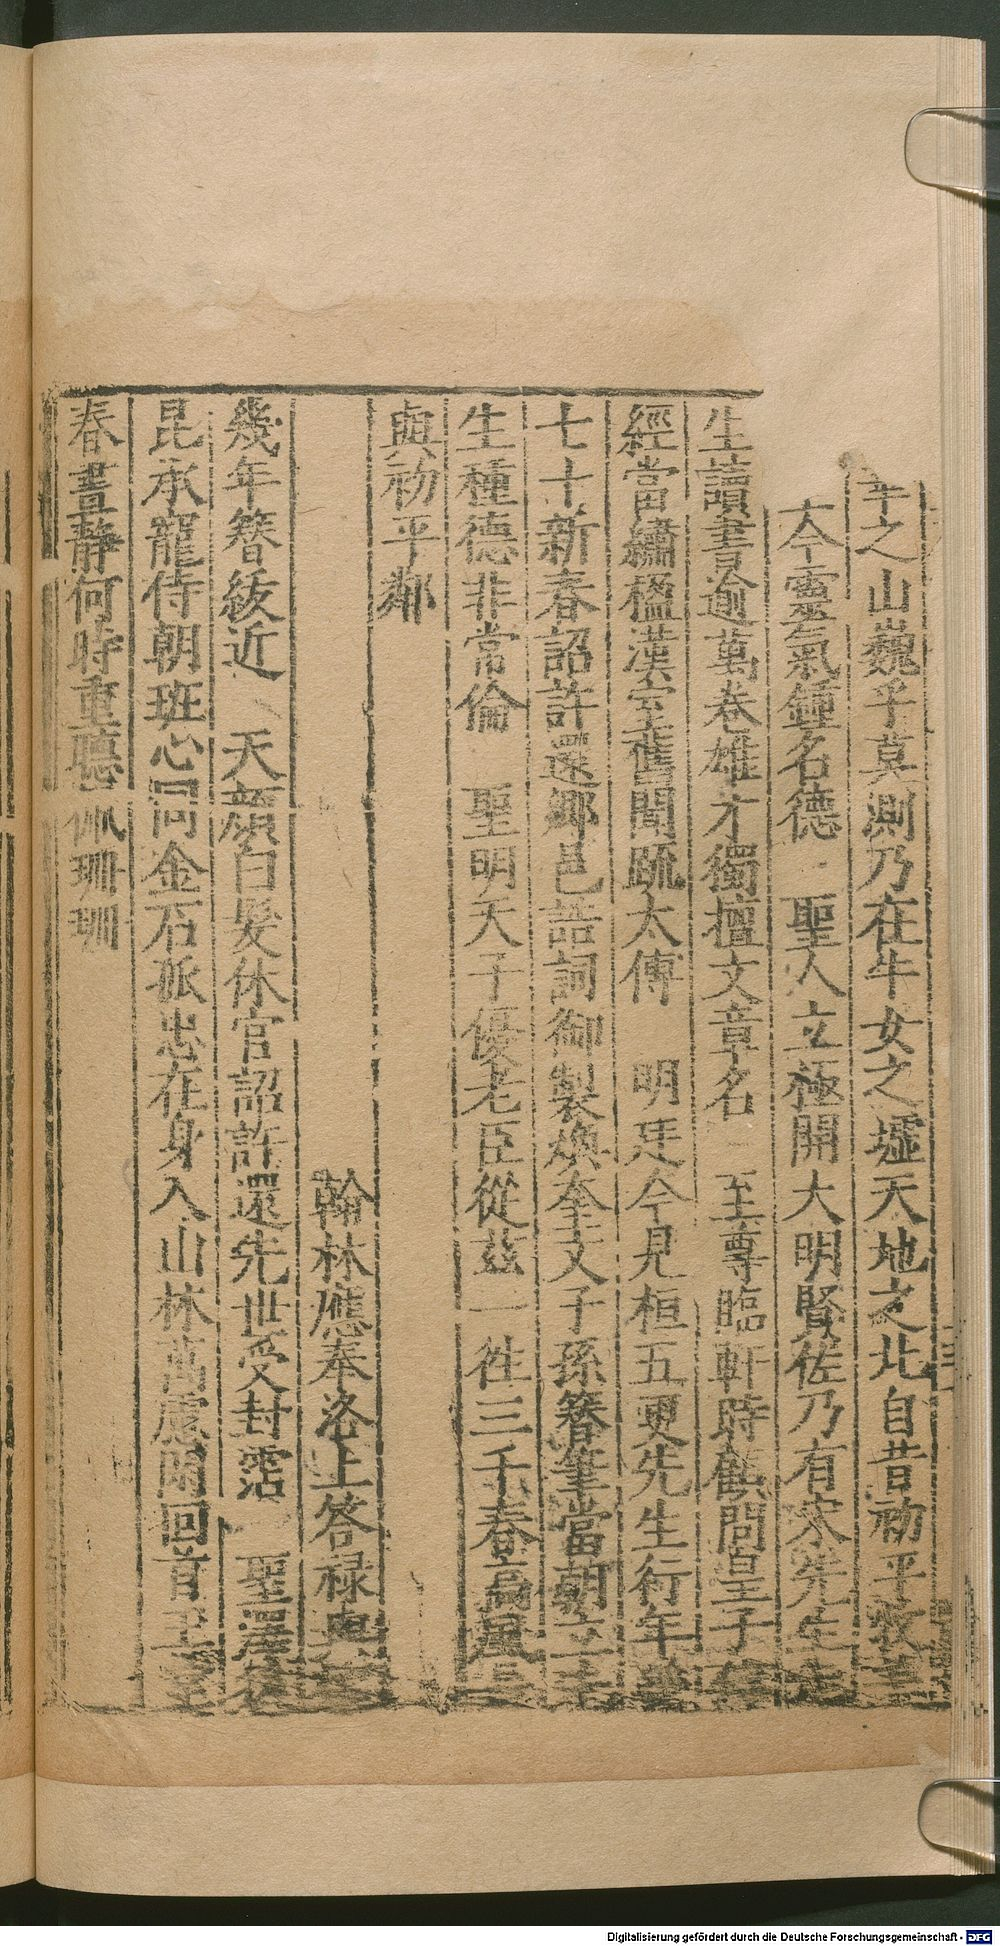 羊之山巍乎莫測乃在牛女之墟天地之北自昔初平牧
今靈氣鍾名德 聖人立極開大明賢佐乃有宋先生先
生讀書逾萬卷雄才獨擅文章名 至尊臨軒時顧問皇子
經當繡楹漢室舊聞疏太傅 明廷今見桓五更先生行年
七十新春詔許還鄉邑誥詞御製煥奎文子孫簪筆當朝立
生種德非常倫 聖明天子優老臣從茲一徃三千春高風
與初平鄰
翰林應奉洛上答祿與
幾年簪紱近 天顏白髮休官詔許還先世受封霑 聖澤
昆承寵侍朝班心同金石孤忠在身入山林萬慮閒回首
春晝靜何時重聽珮珊珊
Digitalisierung gefördert durch die Deutsche Forschungsgemeinschaft - DFG